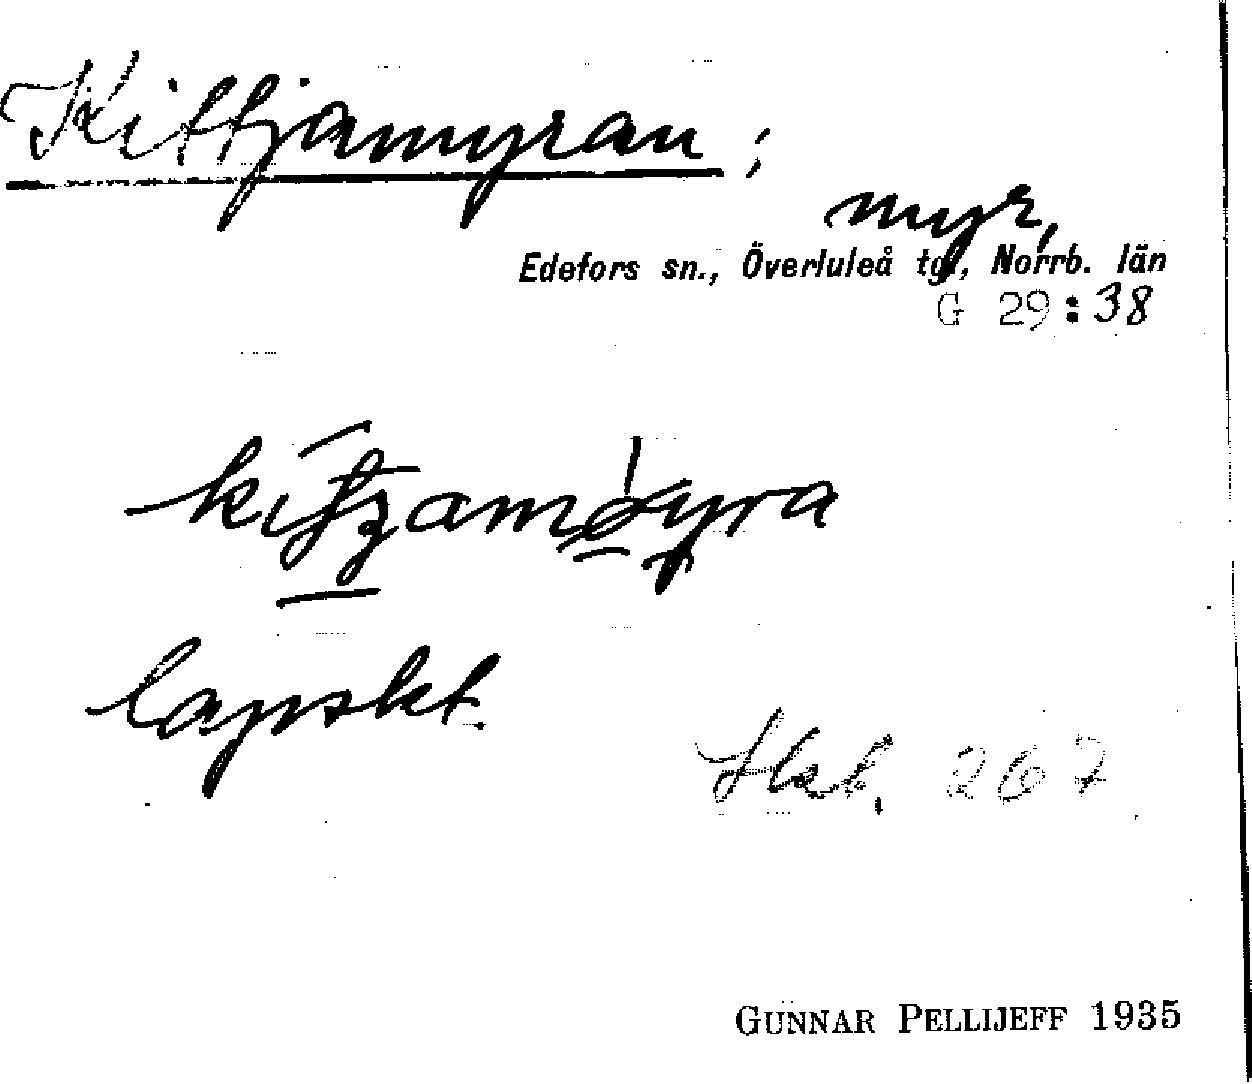 Kittjamyran;
myr,
Edefors sn., Överluleå tg., Norrb. län
G 29:38
lapskt.
267
GUNNAR PELLIJEFF 1935